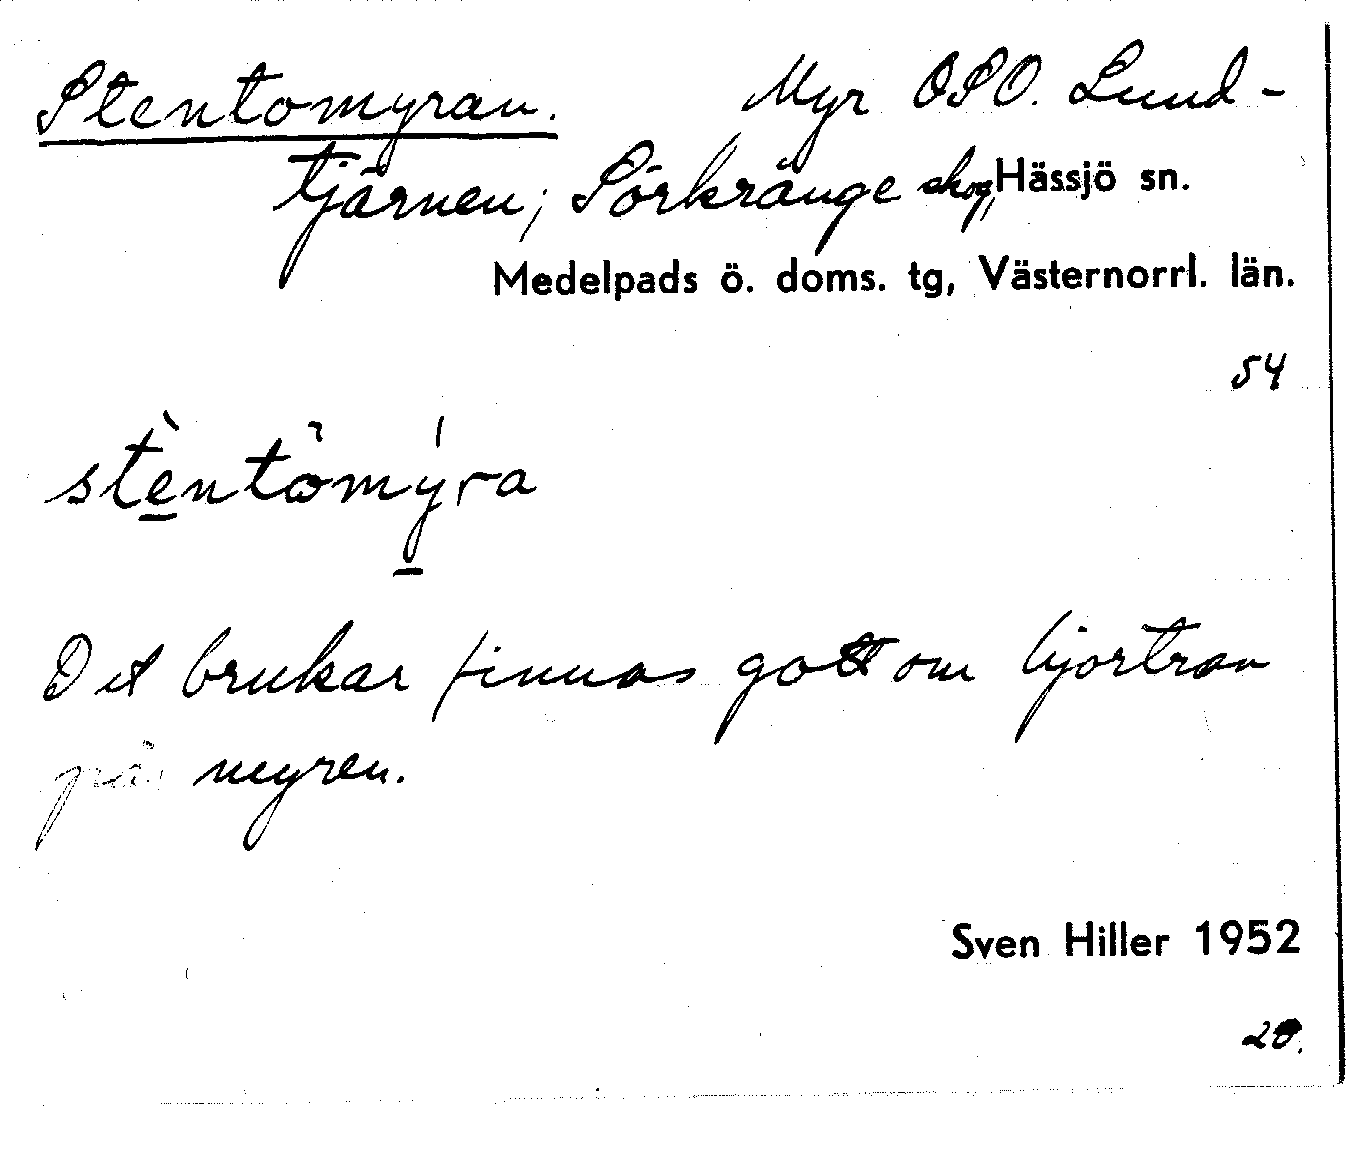 Stentomyran. Myr OSO. Lund-
tjärnen; Sörkränge skog, Hässjö sn.
Medelpads ö. doms. tg, Västernorrl. län.
54
stèntòmýra
Det brukar finnas gott om hjortron
på myren.
Sven Hiller 1952
20.